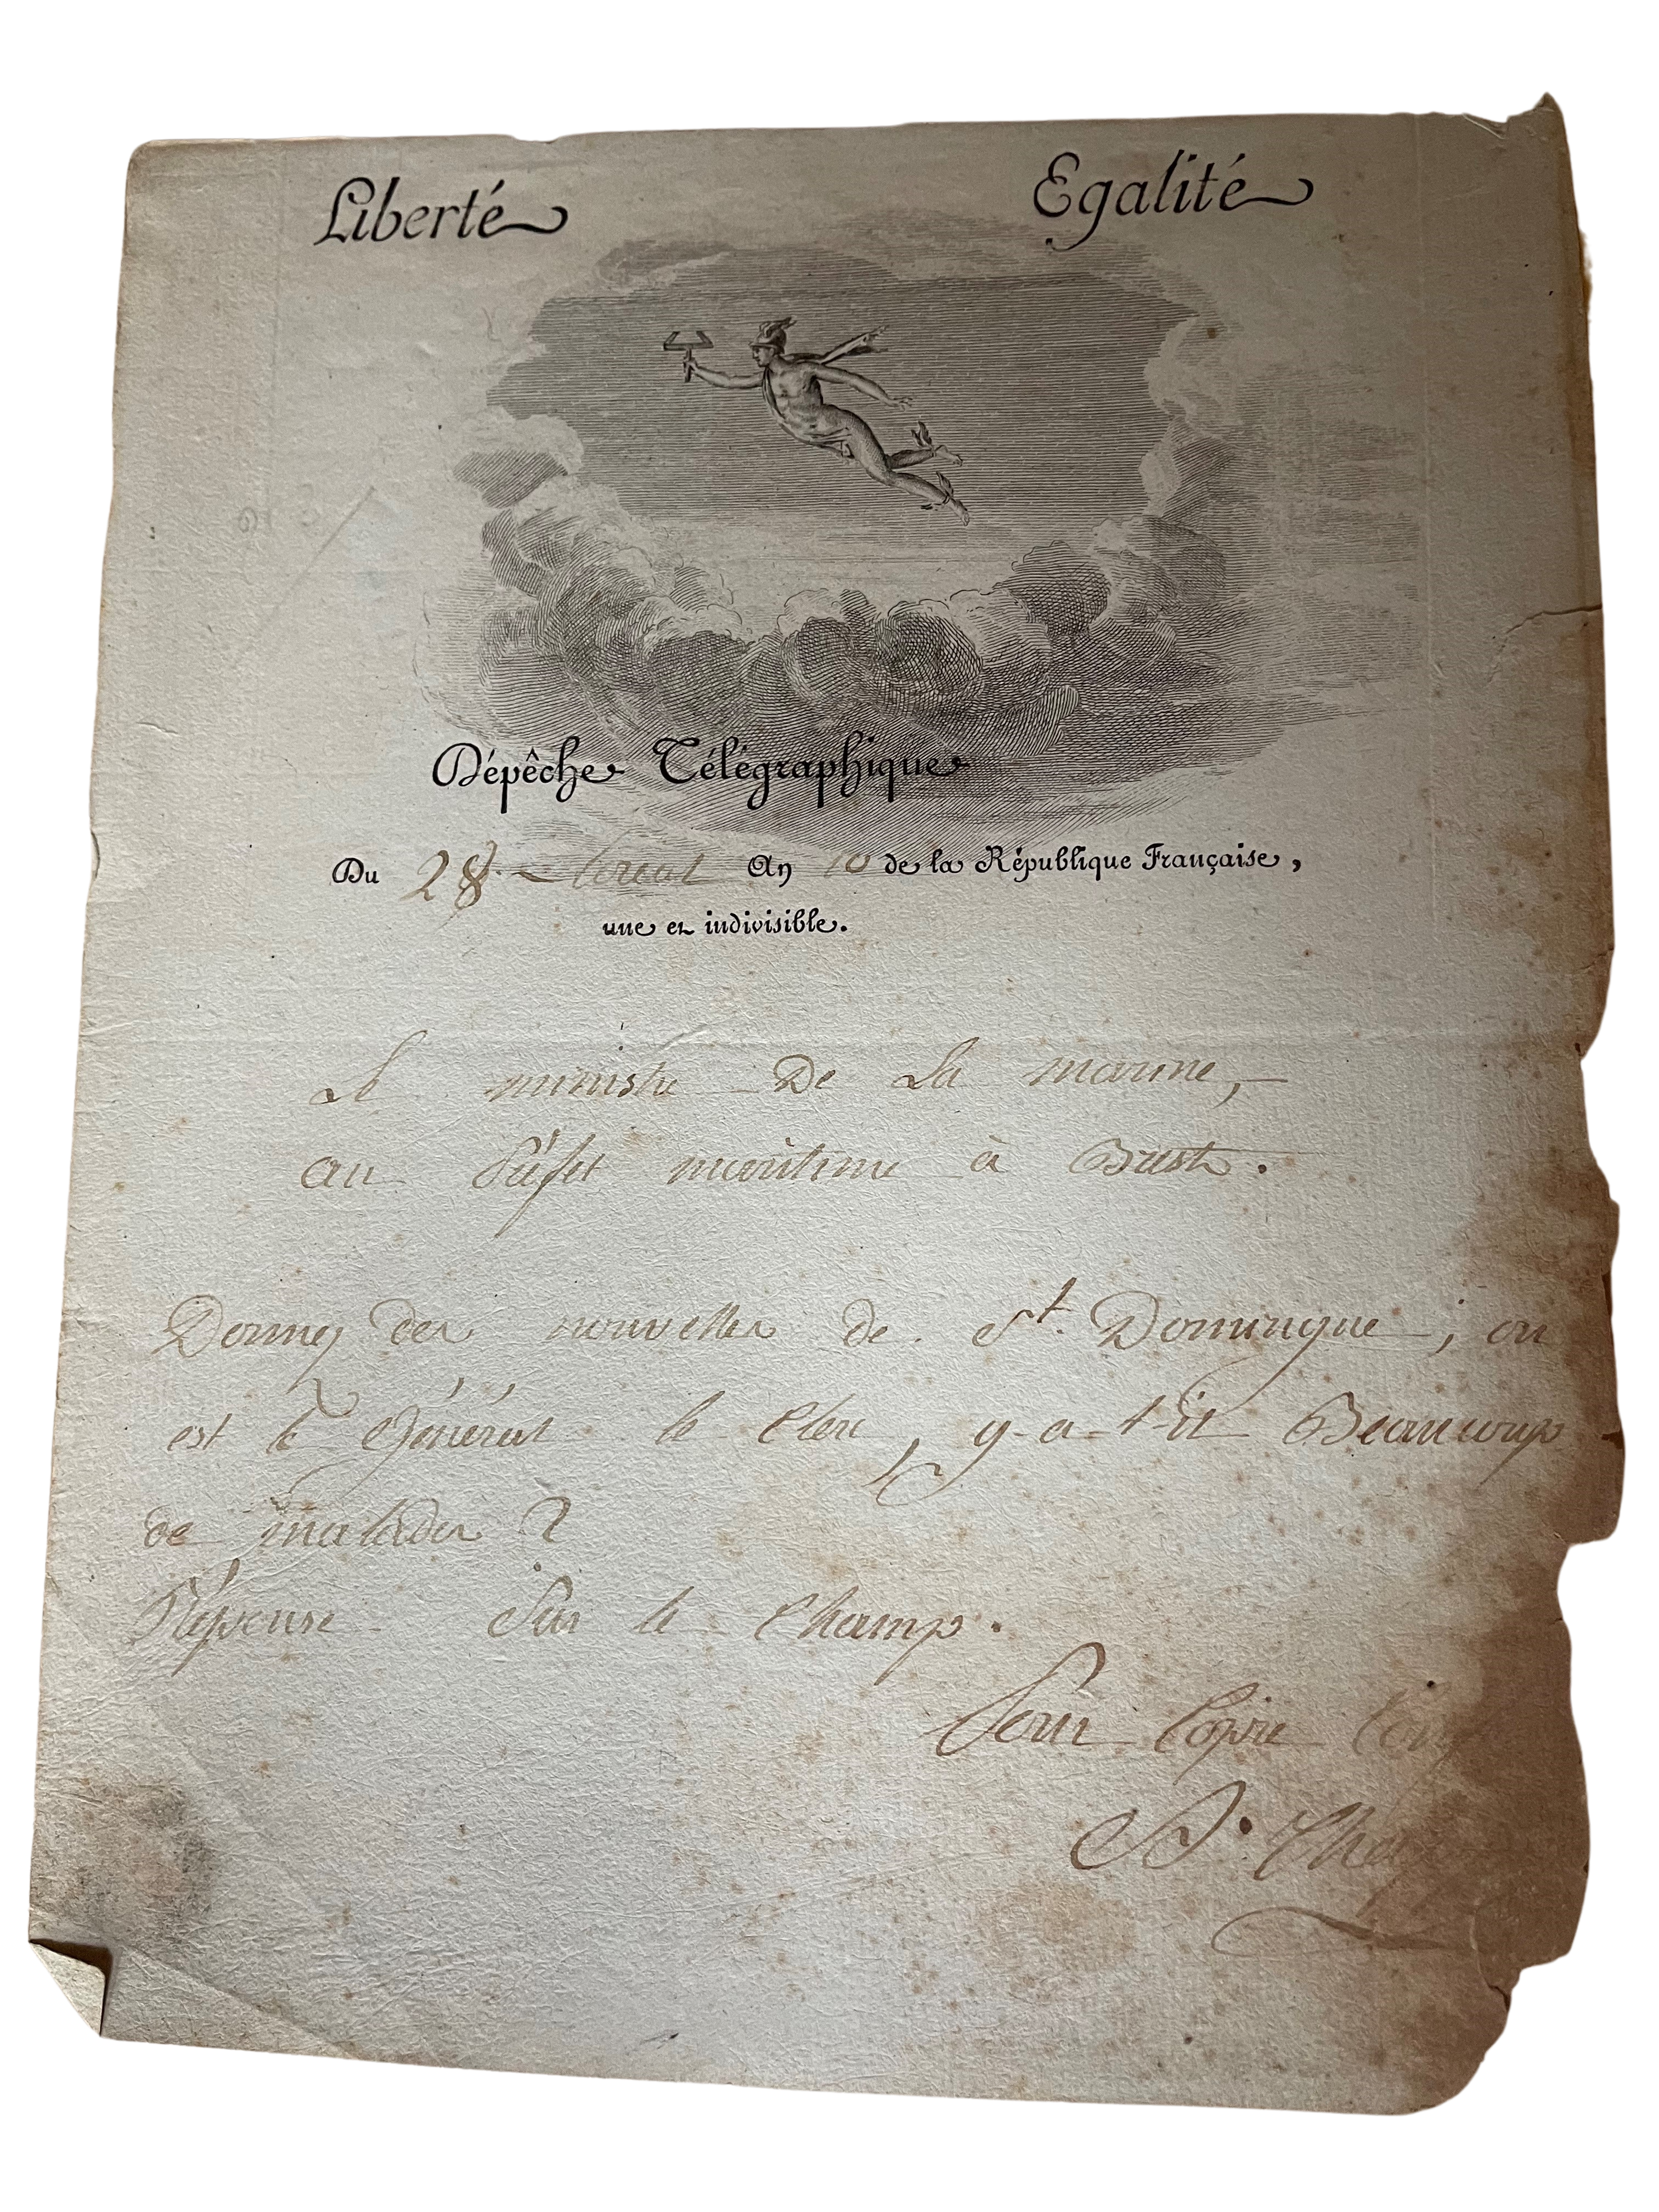 Liberté Egalité
Dépêche Télégraphique
Du 28 floreal An 10 de la République Française,
une et indivisible.
Le ministre De La marine,
au Préfet maritime à Brest.
Donnez des nouvelles de St. Domingue, ou
est le Général le Clerc, y-a-t-il Beaucoup
de malades ?
Réponse Sur le Champ.
Pour Copie